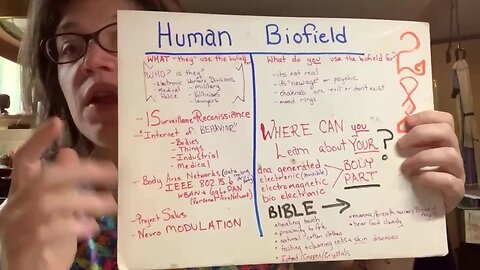 Human Biofield
WHAT "they" use the biofield
WHO? is they?
- Electronic Warfare Divisions
- Medical - military
- Police - Politicians
- Lawyers
- Surveillance Reconissiance
- Internet of BEHAVIOR
- Bodies
- Things
- Industrial
- Medical
- Body Area Networks
IEEE 802.15.6
WBAN
(Personal Area Network)
- Project Salus
- Neuro MODULATION
What do you use the biofield for?
- its not real
- its "new age" or psychic
- chakras are evil or don't exist
- mood rings
WHERE CAN you
Learn about YOUR
BODY
PART
?
dna generated
electronic (invisible)
electromagnetic
bio electronic
BIBLE →
- healing touch
- proximity to
- natural cotton clothes
- fasting & cleansing cells & skin diseases
- Ephod/Copper/Crystals
- hear God clearly